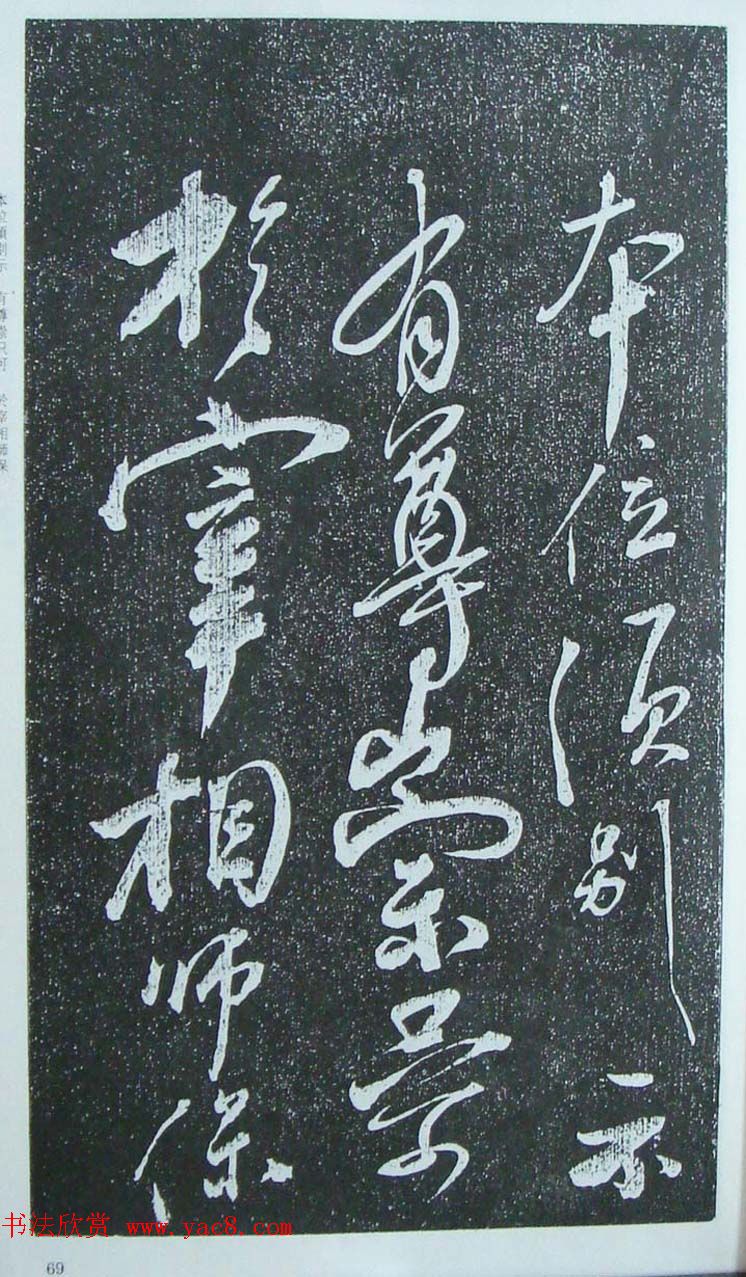 本位須別示
有尊崇只可
於宰相師保
本位須別示 有尊崇只可 於宰相師保
书法欣赏 www.yac8.com
69